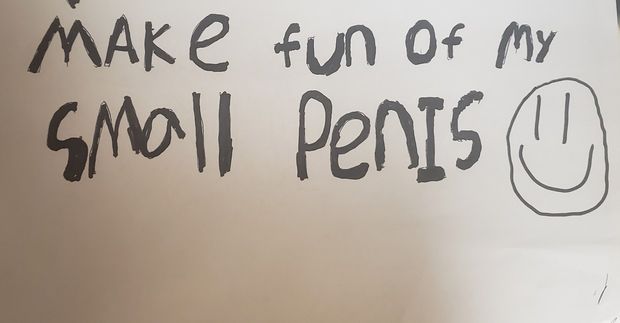 MAKe fun Of My
SMall PenIS